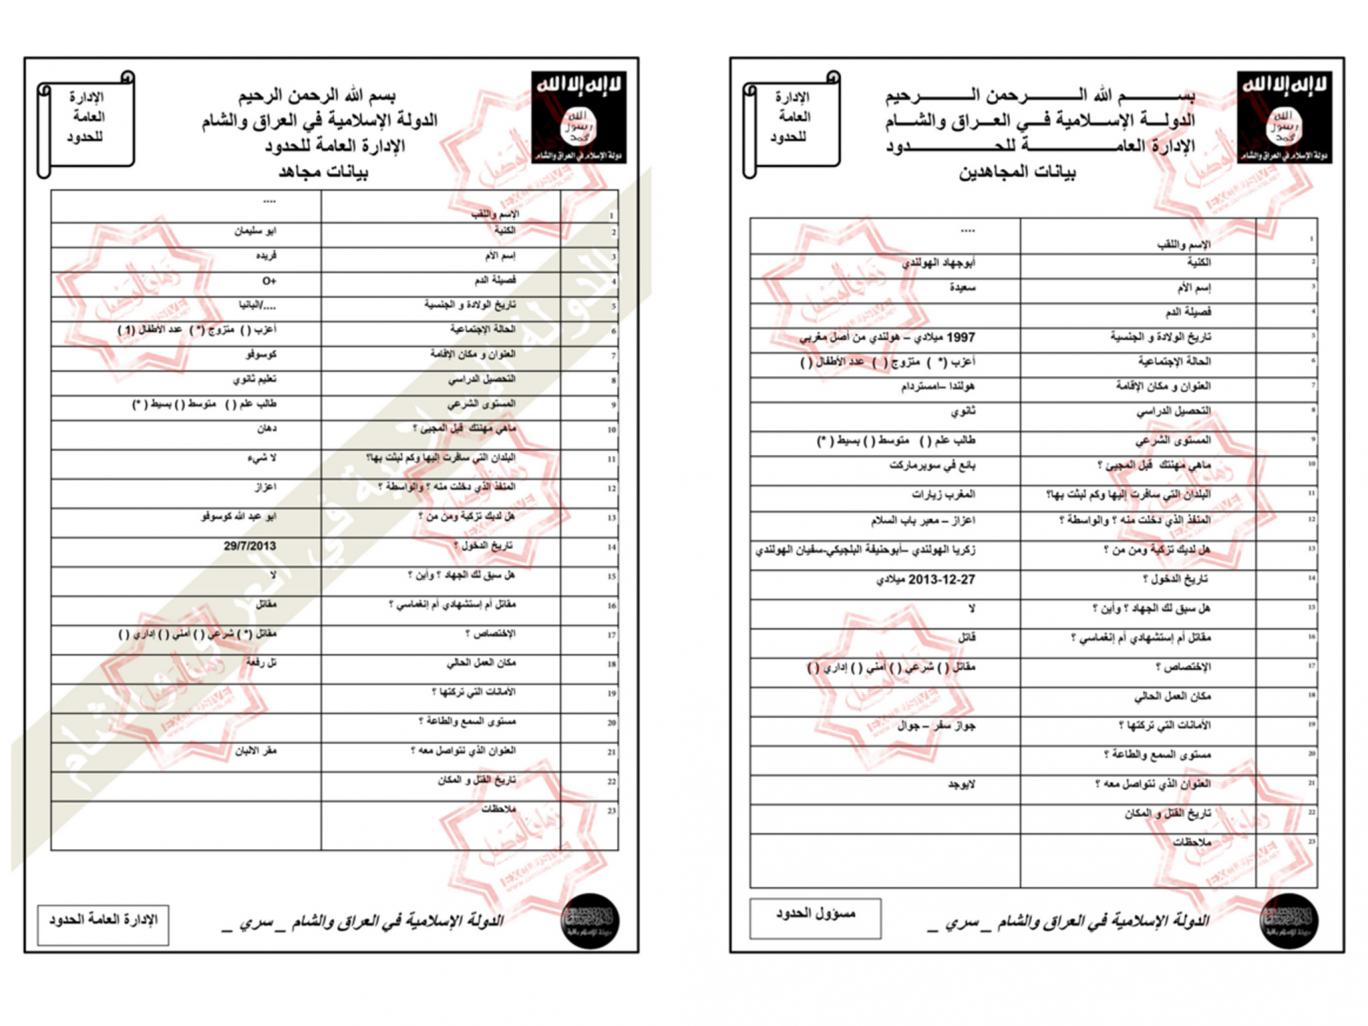 الإدارة
العامة
للحدود
بسم الله الرحمن الرحيم
الدولة الإسلامية في العراق والشام
الإدارة العامة للحدود
بيانات مجاهد
لا إله إلا الله
الله
رسول
محمد
دولة الإسلام في العراق والشام
1 الإسم واللقب ....
2 الكنية ابو سليمان
3 إسم الأم فريده
4 فصيلة الدم O+
5 تاريخ الولادة و الجنسية ..../البانيا
6 الحالة الإجتماعية أعزب ( ) متزوج (*) عدد الأطفال (1)
7 العنوان و مكان الإقامة كوسوفو
8 التحصيل الدراسي تعليم ثانوي
9 المستوى الشرعي طالب علم ( ) متوسط ( ) بسيط (*)
10 ماهي مهنتك قبل المجيئ ؟ دهان
11 البلدان التي سافرت إليها وكم لبثت بها؟ لا شيء
12 المنفذ الذي دخلت منه ؟ والواسطة ؟ اعزاز
13 هل لديك تزكية ومن من ؟ ابو عبد الله كوسوفو
14 تاريخ الدخول ؟ 29/7/2013
15 هل سبق لك الجهاد ؟ وأين ؟ لا
16 مقاتل أم إستشهادي أم إنغماسي ؟ مقاتل
17 الإختصاص ؟ مقاتل (*) شرعي ( ) أمني ( ) إداري ( )
18 مكان العمل الحالي تل رفعة
19 الأمانات التي تركتها ؟
20 مستوى السمع والطاعة ؟
21 العنوان الذي نتواصل معه ؟ مقر الالبان
22 تاريخ القتل و المكان
23 ملاحظات
الدولة الإسلامية في العراق والشام _ سري _
الإدارة العامة الحدود
الإدارة
العامة
للحدود
بســـم الله الـــرحمن الـــرحيم
الدولـــة الإســـلامية فـــي العـــراق والشـــام
الإدارة العامـــة للحـــدود
بيانات المجاهدين
لا إله إلا الله
الله
رسول
محمد
دولة الإسلام في العراق والشام
1 الإسم واللقب ....
2 الكنية أبوجهاد الهولندي
3 إسم الأم سعيدة
4 فصيلة الدم
5 تاريخ الولادة و الجنسية 1997 ميلادي – هولندي من أصل مغربي
6 الحالة الإجتماعية أعزب (*) متزوج ( ) عدد الأطفال ( )
7 العنوان و مكان الإقامة هولندا –امستردام
8 التحصيل الدراسي ثانوي
9 المستوى الشرعي طالب علم ( ) متوسط ( ) بسيط (*)
10 ماهي مهنتك قبل المجيئ ؟ بائع في سوبرماركت
11 البلدان التي سافرت إليها وكم لبثت بها؟ المغرب زيارات
12 المنفذ الذي دخلت منه ؟ والواسطة ؟ اعزاز – معبر باب السلام
13 هل لديك تزكية ومن من ؟ زكريا الهولندي –أبوحنيفة البلجيكي-سفيان الهولندي
14 تاريخ الدخول ؟ 27-12-2013 ميلادي
15 هل سبق لك الجهاد ؟ وأين ؟ لا
16 مقاتل أم إستشهادي أم إنغماسي ؟ قاتل
17 الإختصاص ؟ مقاتل ( ) شرعي ( ) أمني ( ) إداري ( )
18 مكان العمل الحالي
19 الأمانات التي تركتها ؟ جواز سفر – جوال
20 مستوى السمع والطاعة ؟
21 العنوان الذي نتواصل معه ؟ لايوجد
22 تاريخ القتل و المكان
23 ملاحظات
الدولة الإسلامية في العراق والشام _ سري _
مسؤول الحدود